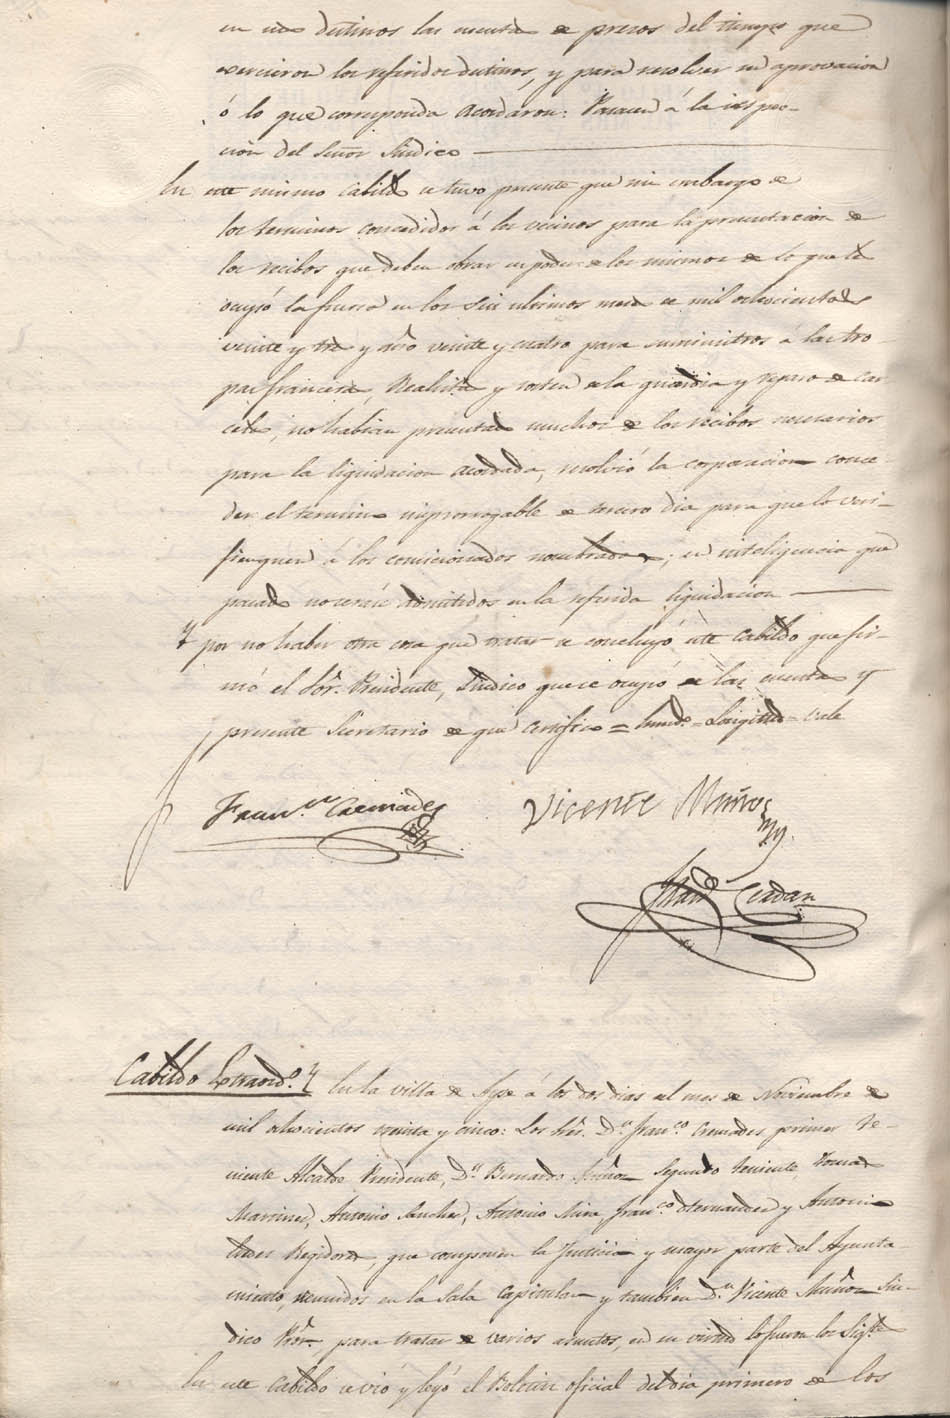 en sus destinos las cuentas de presos del tiempo que
exercieron los referidos destinos, y para resolver su aprovacion
ó lo que corresponda Acordaron: Pasaran á la inspec-
cion del Señor Sindico
En este mismo Cabildo se tuvo presente que sin embargo de
los terminos concedidos á los vecinos para la presentacion de
los recibos que deben obrar en poder de los mismos de lo que se
ocupó la fuerza en los seis ultimos meses de mil ochocientos
veinte y tres y año veinte y cuatro para suministros á las tro-
pas francesas, Realistas y sosten de la guardia y reparo de car-
celes, no habian presentado muchos de los recibos necesarios
para la liquidacion acordada, resolvió la corporacion conce-
der el termino improrrogable de tercero dia para que lo veri-
fiquen á los comicionados nombrados, en inteligencia que
pasado no serán admitidos en la referida liquidacion
Y por no haber otra cosa que tratar se concluyó este Cabildo que fir-
mó el Sor. Presidente, Sindico que se ocupó de las cuentas y
presente Secretario de que certifico = = vale
Franco. Cremades
Vicente Muñoz
Franco Cerdan
Cabildo Extraordo. En la villa de Aspe á los dos dias del mes de Noviembre de
mil ochocientos treinta y cinco: Los Sres. Dn. Franco. Cremades primer Te-
niente Alcalde Presidente, Dn. Bernardo Muñoz Segundo teniente, Tomas
Martinez, Antonio Sanchez, Antonio Mira, Franco. Hernandez y Antonio
Regidores, que componen la Justicia y mayor parte del Ayunta-
miento, reunidos en la Sala Capitular y tambien Dn. Vicente Muñoz Sin-
dico Pror., para tratar de varios asuntos, en su virtud lo fueron los Sigtes.
En este Cabildo se vió y leyó el Boletin oficial del dia primero de los